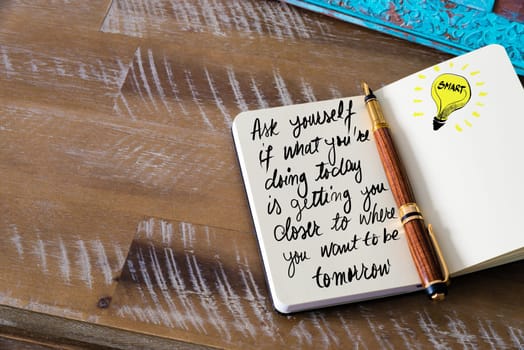 Ask yourself
if what you're
doing today
is getting you
closer to where
you want to be
tomorrow
SMART